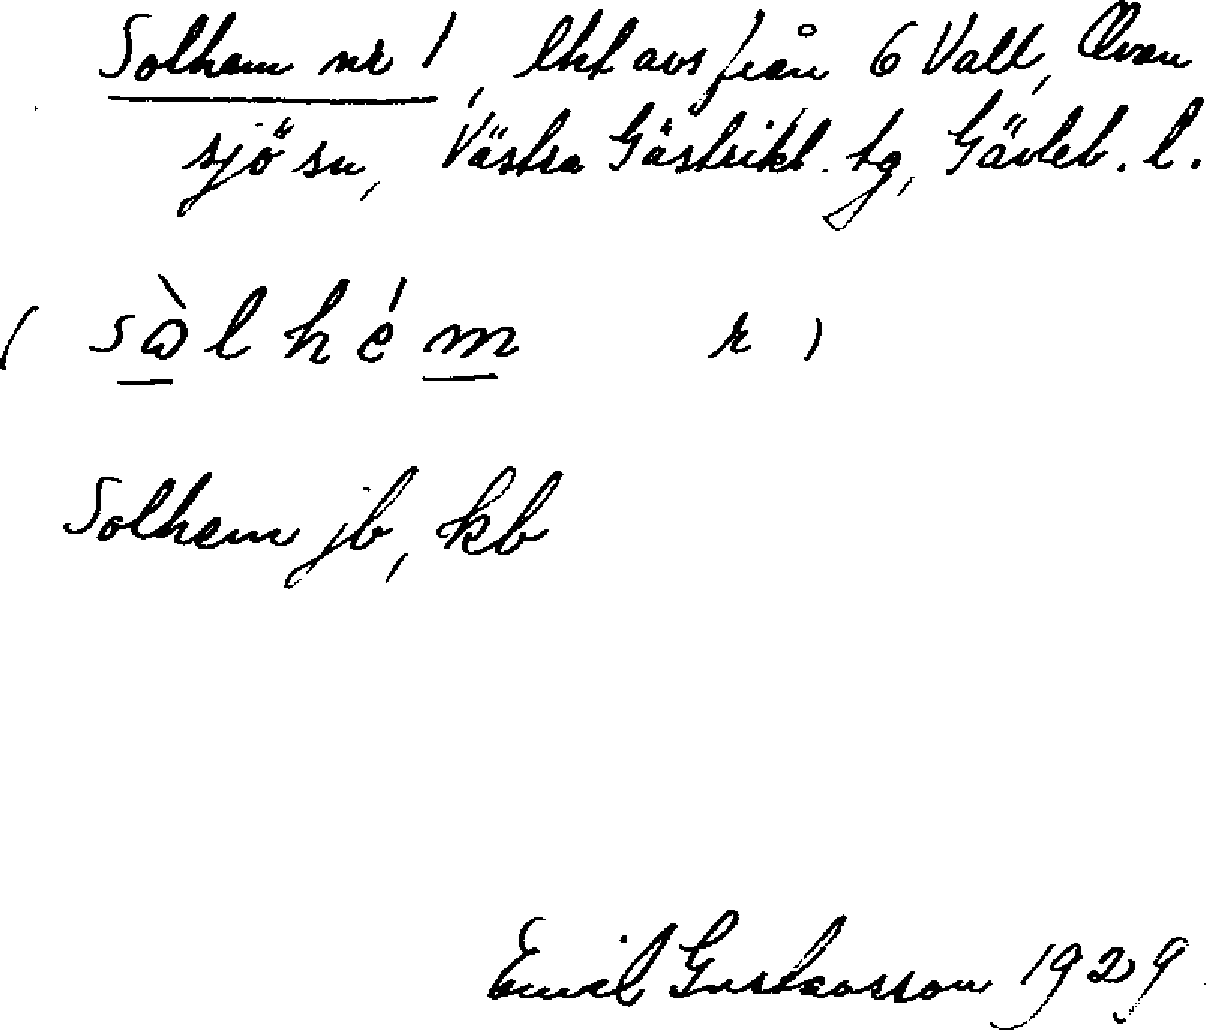 Solhem nr 1, lht avs från 6 Vall, Ovan
sjö sn, Västra Gästrikl. tg, Gävleb. l.
( sὼlhém r )
Solhem jb, kb
Emil Gustavsson 1929